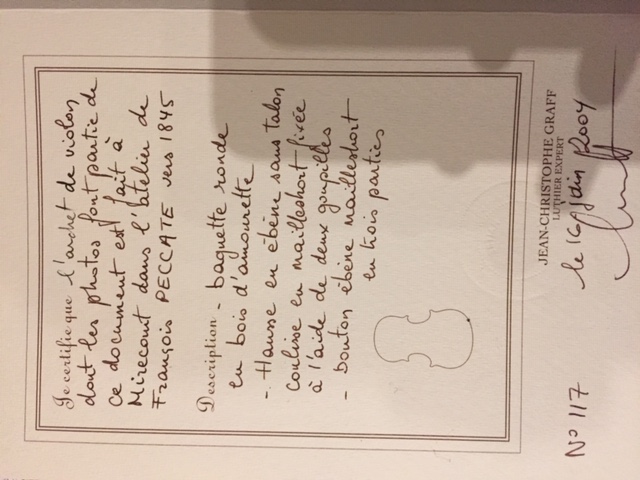 Je certifie que l'archet de violon
dont les photos font partie de
ce document est fait à
Mirecourt dans l'atelier de
François PECCATE vers 1845
Description - baguette ronde
en bois d'amourette
- Hausse en ébène sans talon
coulisse en mailleshort fixée
à l'aide de deux goupilles
- bouton ébène mailleshort
en trois parties
JEAN-CHRISTOPHE GRAFF
LUTHIER EXPERT
le 16 Juin 2004
N° 117